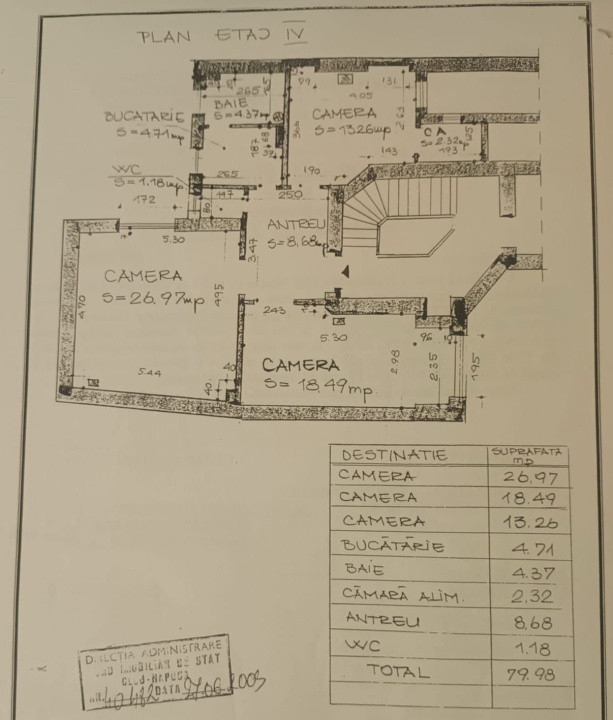 PLAN ETAJ IV
265
BAIE
S=4.37mp
BUCATARIE
S=4.71mp
WC
S=1.18mp
172
265
147
80
187
250
190
99
131
4.05
CAMERA
S=13.26mp
2.63
143
CA
S=2.32mp
193
ANTREU
S=8,68mp
3.47
5.30
CAMERA
S=26.97mp
470
495
5.44
40
40
243
5.30
CAMERA
S=18,49mp
2.98
96
2.35
195
DESTINATIE SUPRAFATA mp
CAMERA 26,97
CAMERA 18.49
CAMERA 13.26
BUCĂTĂRIE 4.71
BAIE 4.37
CĂMARĂ ALIM. 2,32
ANTREU 8,68
WC 1.18
TOTAL 79.98
DIRECŢIA ADMINISTRARE
IMOBILIAR DE STAT
CLUJ-NAPOCA
DATA